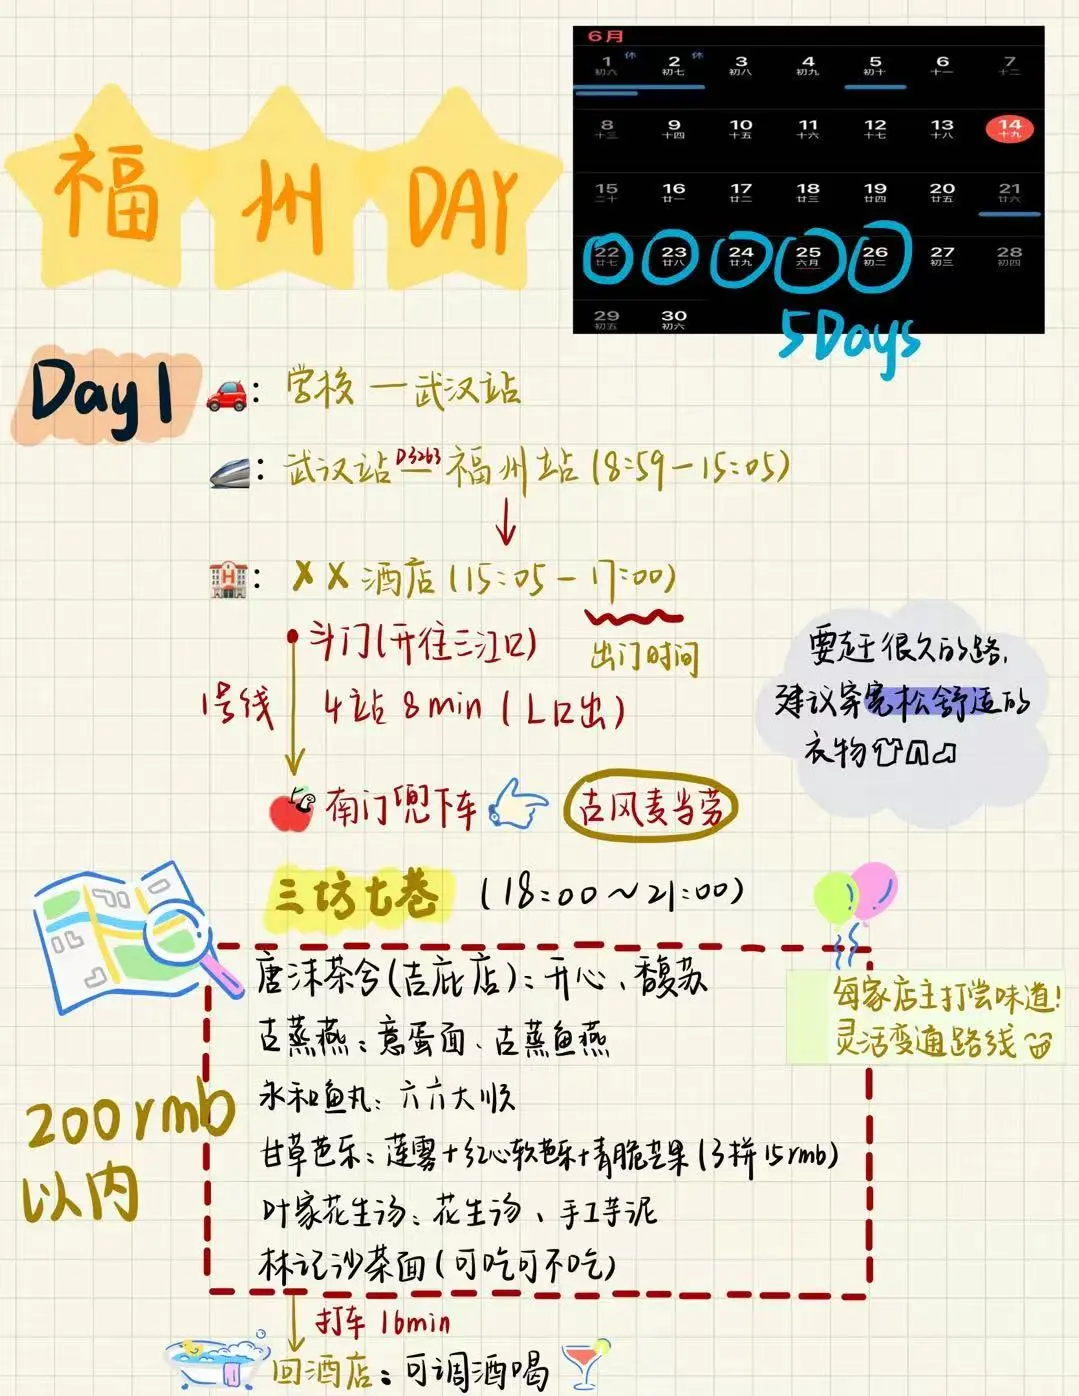 福州DAY
6月
1 2 3 4 5 6 7
休 休
初六 初七 初八 初九 初十 十一 十二
8 9 10 11 12 13 14
十三 十四 十五 十六 十七 十八 十九
15 16 17 18 19 20 21
二十 廿一 廿二 廿三 廿四 廿五 廿六
22 23 24 25 26 27 28
廿七 廿八 廿九 六月 初二 初三 初四
29 30
初五 初六
5Days
Day1
：学校—武汉站
：武汉站 D3263 福州站(8:59-15:05)
H：XX酒店(15:05-17:00)
出门时间
斗门(开往三江口)
1号线
4站 8min(L口出)
南门兜下车
古风麦当劳
要赶很久的路,
建议穿宽松舒适的
衣物
三坊七巷 (18:00~21:00)
唐沫茶兮(吉庇店)：开心、馥苏
古蒸燕：意蛋面、古蒸鱼燕
永和鱼丸：六六大顺
甘草芭乐：莲雾+红心软芭乐+青脆芒果(3拼15rmb)
叶家花生汤：花生汤、手工芋泥
林记沙茶面(可吃可不吃)
每家店主打尝味道!
灵活变通路线
200rmb
以内
打车16min
回酒店：可调酒喝